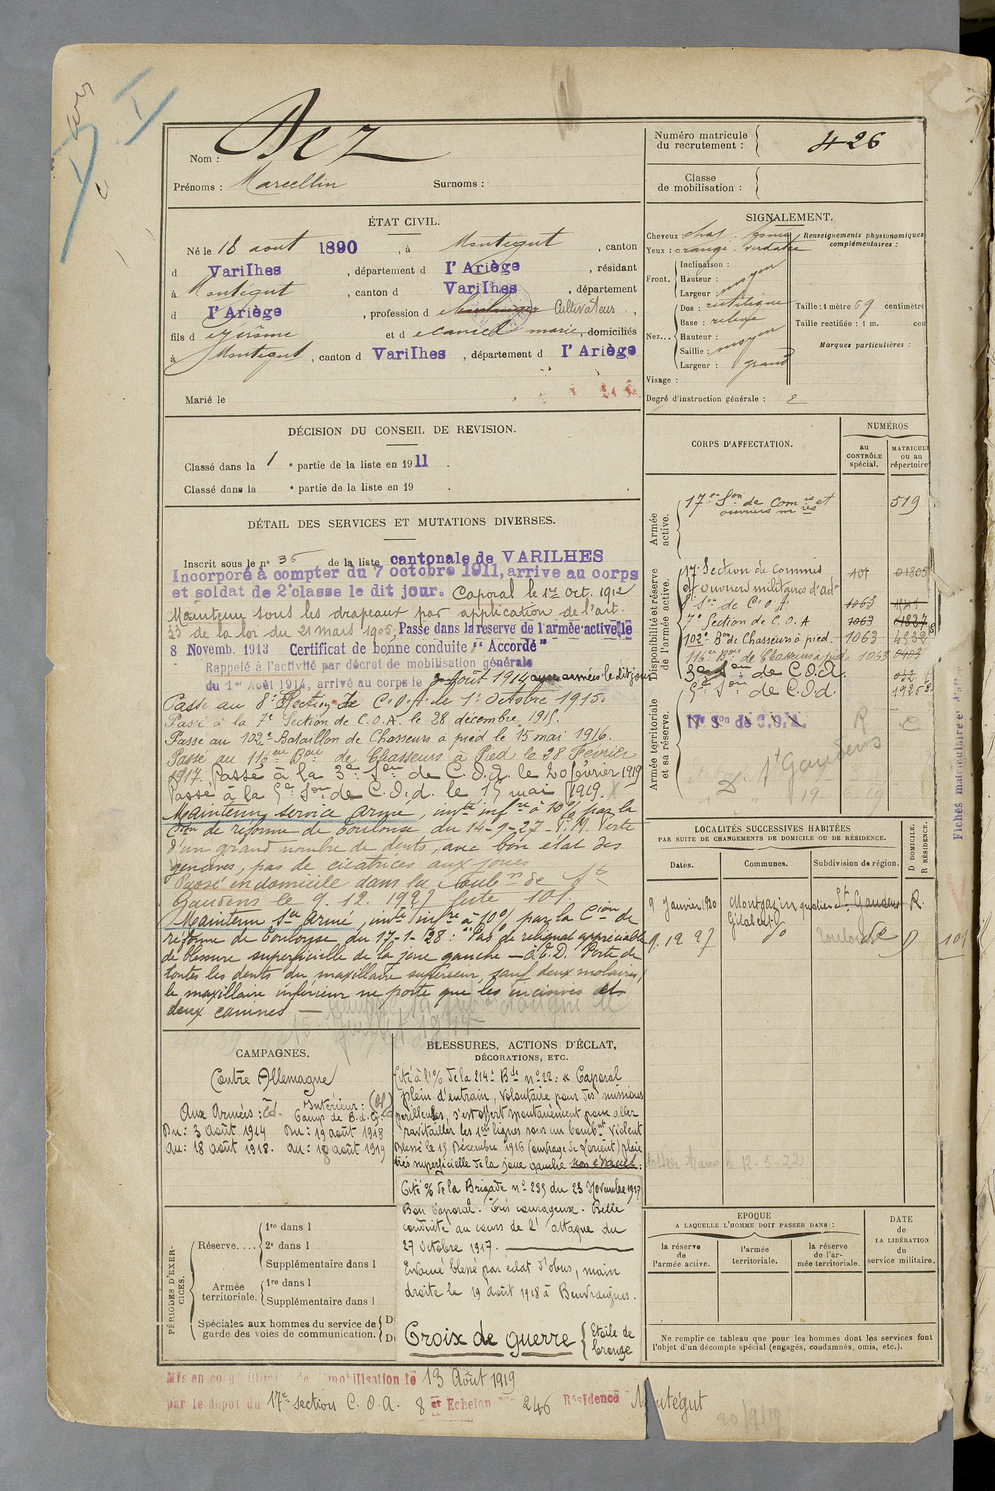 Nom : Dez
Prénoms : Marcellin Surnoms :
Numéro matricule du recrutement : 426
Classe de mobilisation :
ÉTAT CIVIL.
Né le 18 août 1890, à Montégut, canton
d Varilhes, département d l'Ariège, résidant
à Montégut, canton d Varilhes, département
d l'Ariège, profession d Cultivateur,
fils d Jérôme et d marie, domiciliés
à Montégut, canton d Varilhes, département d l'Ariège
Marié le
SIGNALEMENT.
Cheveux : chat.
Yeux : orangé verdâtre
Renseignements physionomiques complémentaires :
Front. Inclinaison :
Hauteur : moyen
Largeur :
Nez... Dos : rectiligne
Base : relevé
Hauteur : moyen
Saillie :
Largeur : grand
Taille : 1 mètre 69 centimètres
Taille rectifiée : 1 m. cou
Marques particulières :
Visage :
Degré d'instruction générale : 2
DÉCISION DU CONSEIL DE REVISION.
Classé dans la 1 e partie de la liste en 1911.
Classé dans la e partie de la liste en 19 .
DÉTAIL DES SERVICES ET MUTATIONS DIVERSES.
Inscrit sous le n° 36 de la liste cantonale de VARILHES
Incorporé à compter du 7 octobre 1911, arrivé au corps
et soldat de 2e classe le dit jour. Caporal le 1er Oct. 1912
Maintenu sous les drapeaux par application de l'art.
33 de la loi du 21 mars 1905. Passé dans la réserve de l'armée active le
8 Novemb. 1913 Certificat de bonne conduite "Accordé"
Rappelé à l'activité par décret de mobilisation générale
du 1er Août 1914, arrivé au corps le 3 Août 1914 aux armées le dit jour
Passé au 8e Section de C.O.A. le 1er Octobre 1915.
Passé à la 7e Section de C.O.A. le 28 décembre 1915.
Passé au 102e Bataillon de Chasseurs à pied le 15 mai 1916.
Passé au 116eme Bon de Chasseurs à Pied le 28 Février
1917. Passé à la 3e Son de C.O.A. le 20 février 1919
Passé à la 5e Son de C.O.A. le 15 mai 1919.
Maintenu service armé, invté infre à 10% par la
Con de réforme de Toulouse du 14-9-27 P.V. Perte
d'un grand nombre de dents, avec bon état des
gencives, pas de cicatrices aux joues
Passé en domicile dans la subon de St
Gaudens le 9.12.1927 liste 101
Maintenu Sce Armé, invté infre à 10% par la Cion de
réforme de Toulouse du 17-1-28 : "Pas de reliquat appréciable
de blessure superficielle de la joue gauche — à E.D. Perte de
toutes les dents du maxillaire supérieur, sauf deux molaires,
le maxillaire inférieur ne porte que les incisives et
deux canines —
CORPS D'AFFECTATION.
NUMÉROS
au CONTRÔLE spécial.
MATRICULE ou au répertoire
Armée active.
17me Son de Commis et
ouvriers mres 519
Disponibilité et réserve de l'armée active.
17e Section de Commis
et Ouvriers militaires d'adon 101
8e Son de C.O.A. 1063
7e Section de C.O.A 1063
102e Bon de Chasseurs à pied 1063 4938
116e Bon de Chasseurs à pied 1063
3e Son de C.O.A.
5e Son de C.O.A.
Armée territoriale et sa réserve.
17e Son de C.O.A.
R C
St Gaudens
LOCALITÉS SUCCESSIVES HABITÉES
PAR SUITE DE CHANGEMENTS DE DOMICILE OU DE RÉSIDENCE.
Dates. Communes. Subdivision de région. D DOMICILE. R RÉSIDENCE.
9 Janvier 1920 Montgazin St Gaudens R.
9.12.27 do do D 101
CAMPAGNES.
Contre Allemagne
Aux Armées : Intérieur :
Du : 3 août 1914 Du : 19 août 1918
Au : 18 août 1918. Au : 18 août 1919
BLESSURES, ACTIONS D'ÉCLAT, DÉCORATIONS, ETC.
Cité à l'O/ de la 214e Bde n° 22 : « Caporal
plein d'entrain, volontaire pour des missions
périlleuses, s'est offert spontanément pour aller
ravitailler les 1res lignes sous un bombmt violent
Blessé le 15 Décembre 1916 plaie
très superficielle de la joue gauche non évacué.
Cité O/ de la Brigade n° 235 du 23 Novembre 1917
Bon Caporal. Très courageux. Belle
conduite au cours de l'attaque du
27 Octobre 1917.
Evacué blessé par éclat d'obus, main
droite le 19 août 1918 à Beuvraignes.
Croix de guerre Etoile de bronze
PÉRIODES D'EXERCICES.
Réserve.... 1re dans l
2e dans l
Supplémentaire dans l
Armée territoriale. 1re dans l
Supplémentaire dans l
Spéciales aux hommes du service de garde des voies de communication. D
D
EPOQUE
A LAQUELLE L'HOMME DOIT PASSER DANS :
la réserve de l'armée active.
l'armée territoriale.
la réserve de l'armée territoriale.
DATE de LA LIBÉRATION du service militaire.
Ne remplir ce tableau que pour les hommes dont les services font
l'objet d'un décompte spécial (engagés, condamnés, omis, etc.).
Mis en congé illimité de démobilisation le 13 Août 1919
par le dépôt du 17e section C.O.A. 8 e Echelon 246 Résidence Montégut
Fiches matriculaires